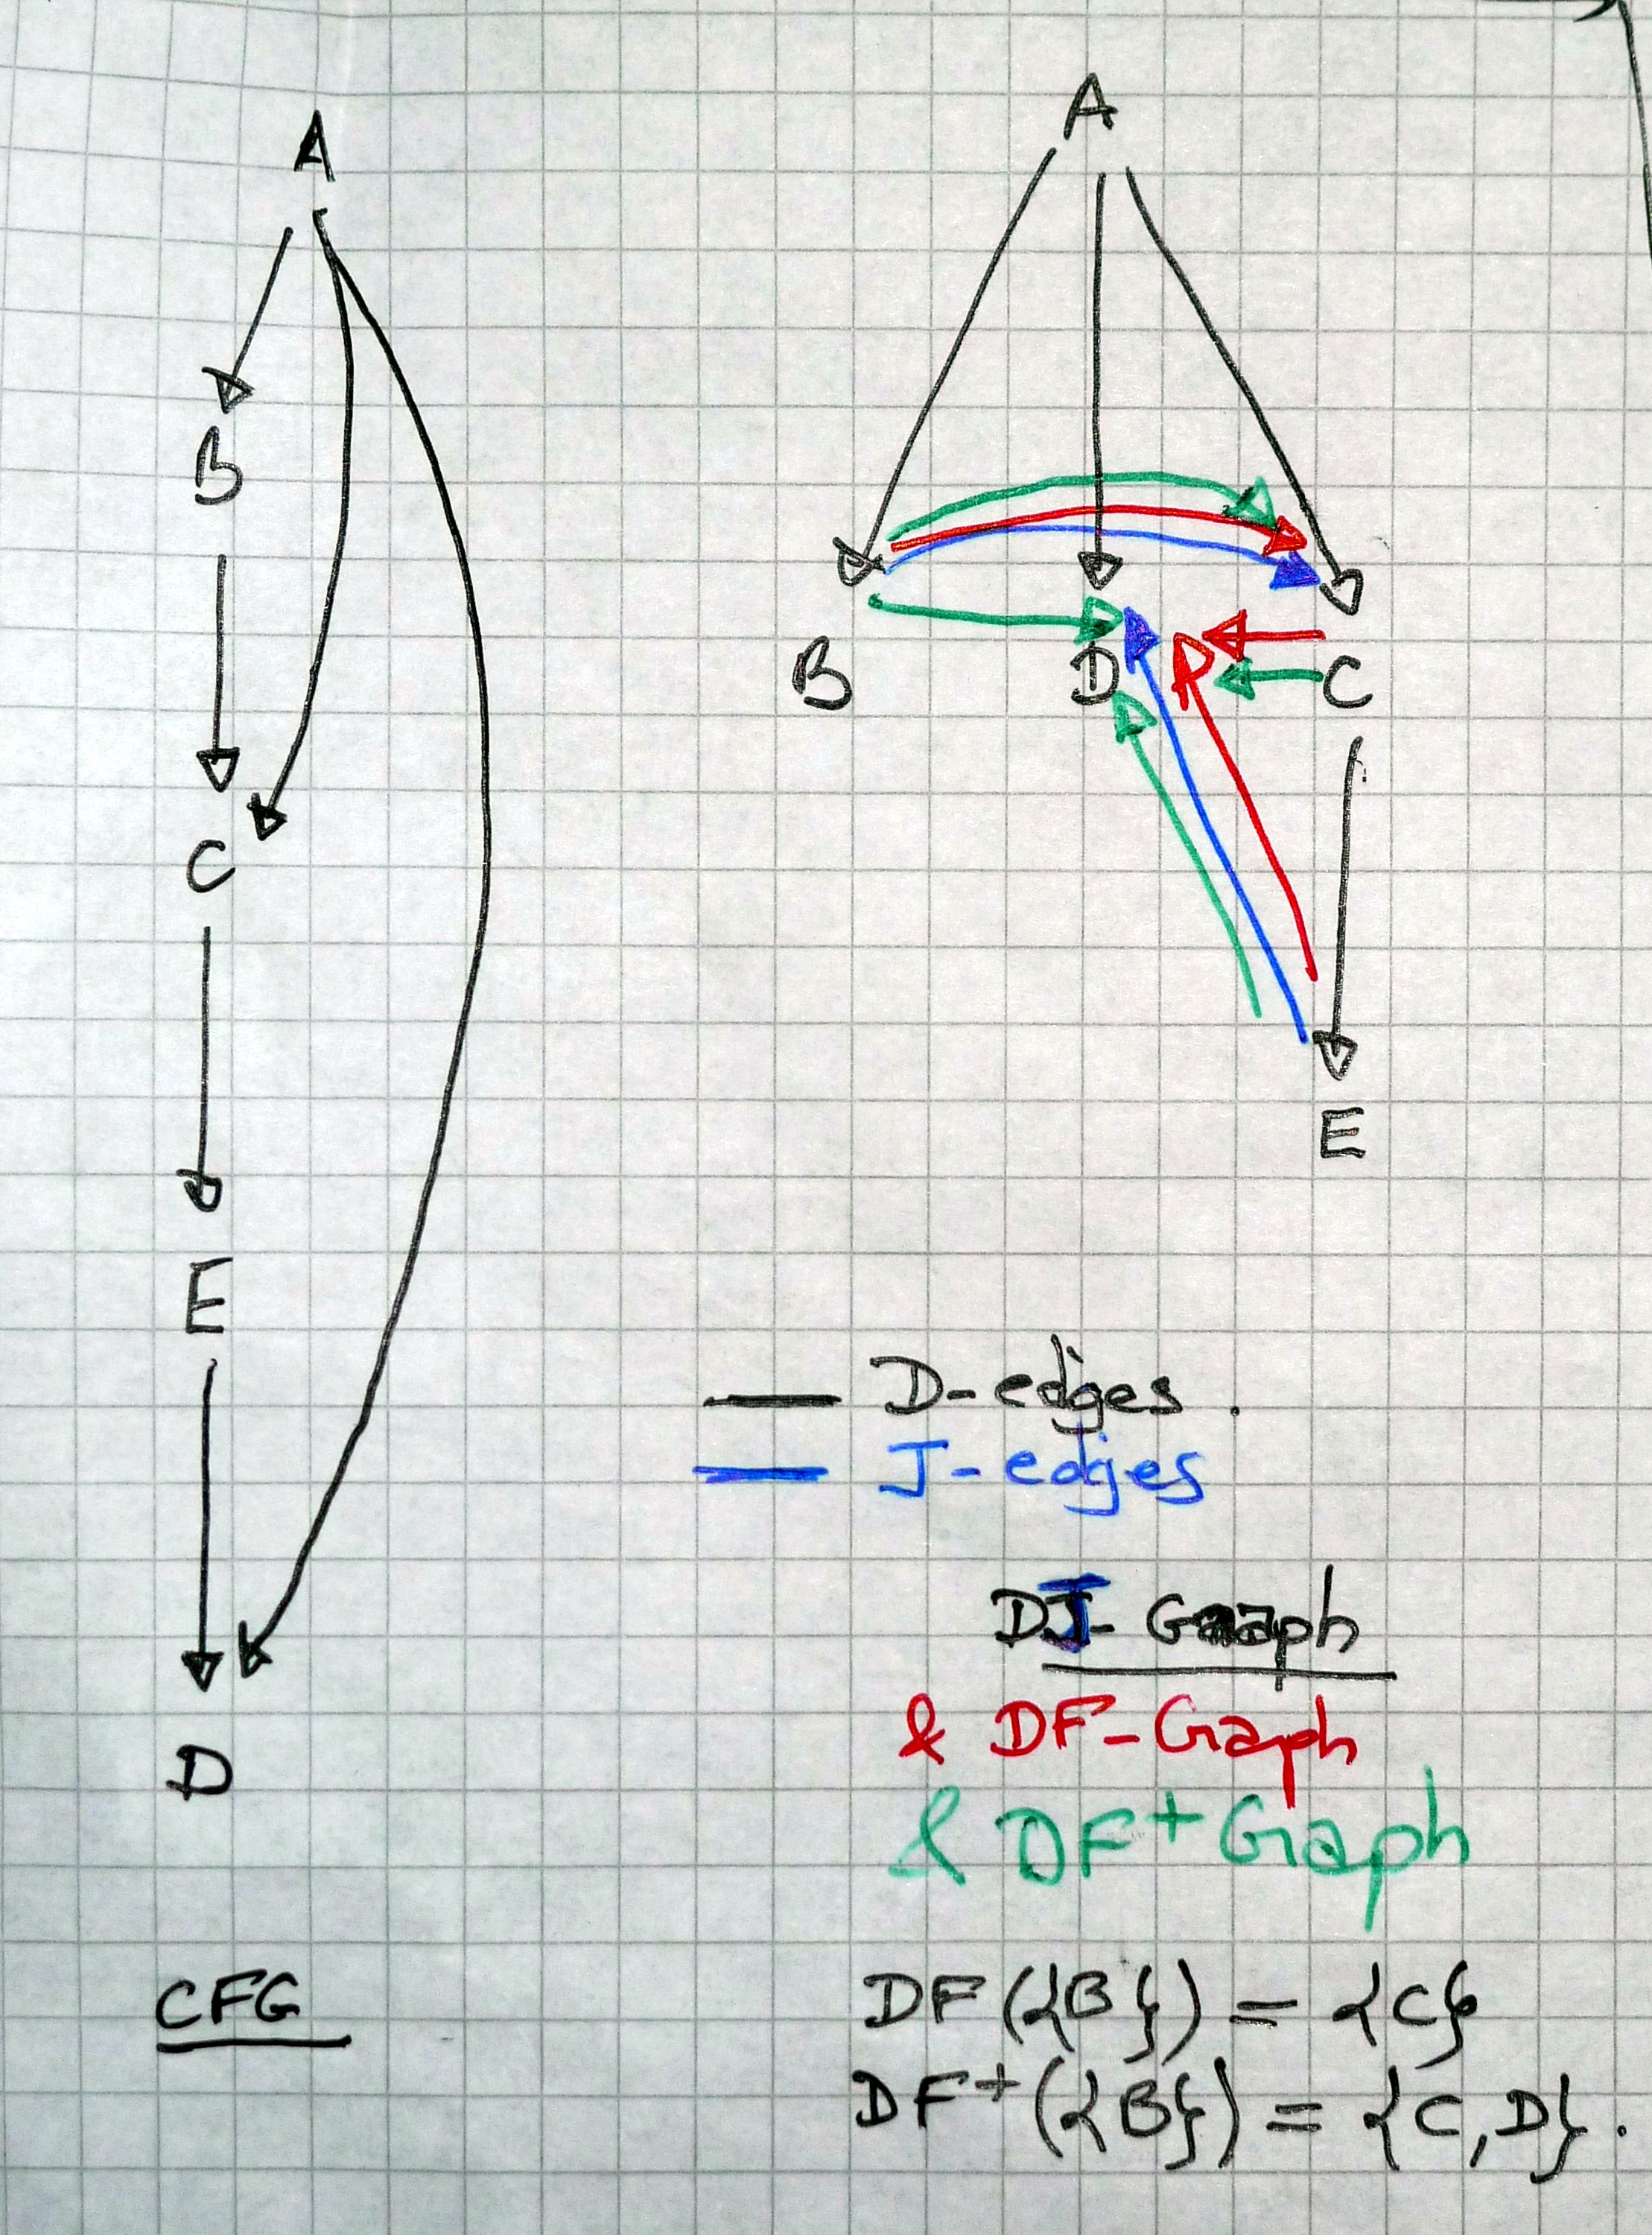 A
B
C
E
D
CFG
A
B D C
E
D-edges.
J-edges
DJ-Graph
& DF-Graph
& DF+Graph
DF({B}) = {C}
DF+({B}) = {C,D}.